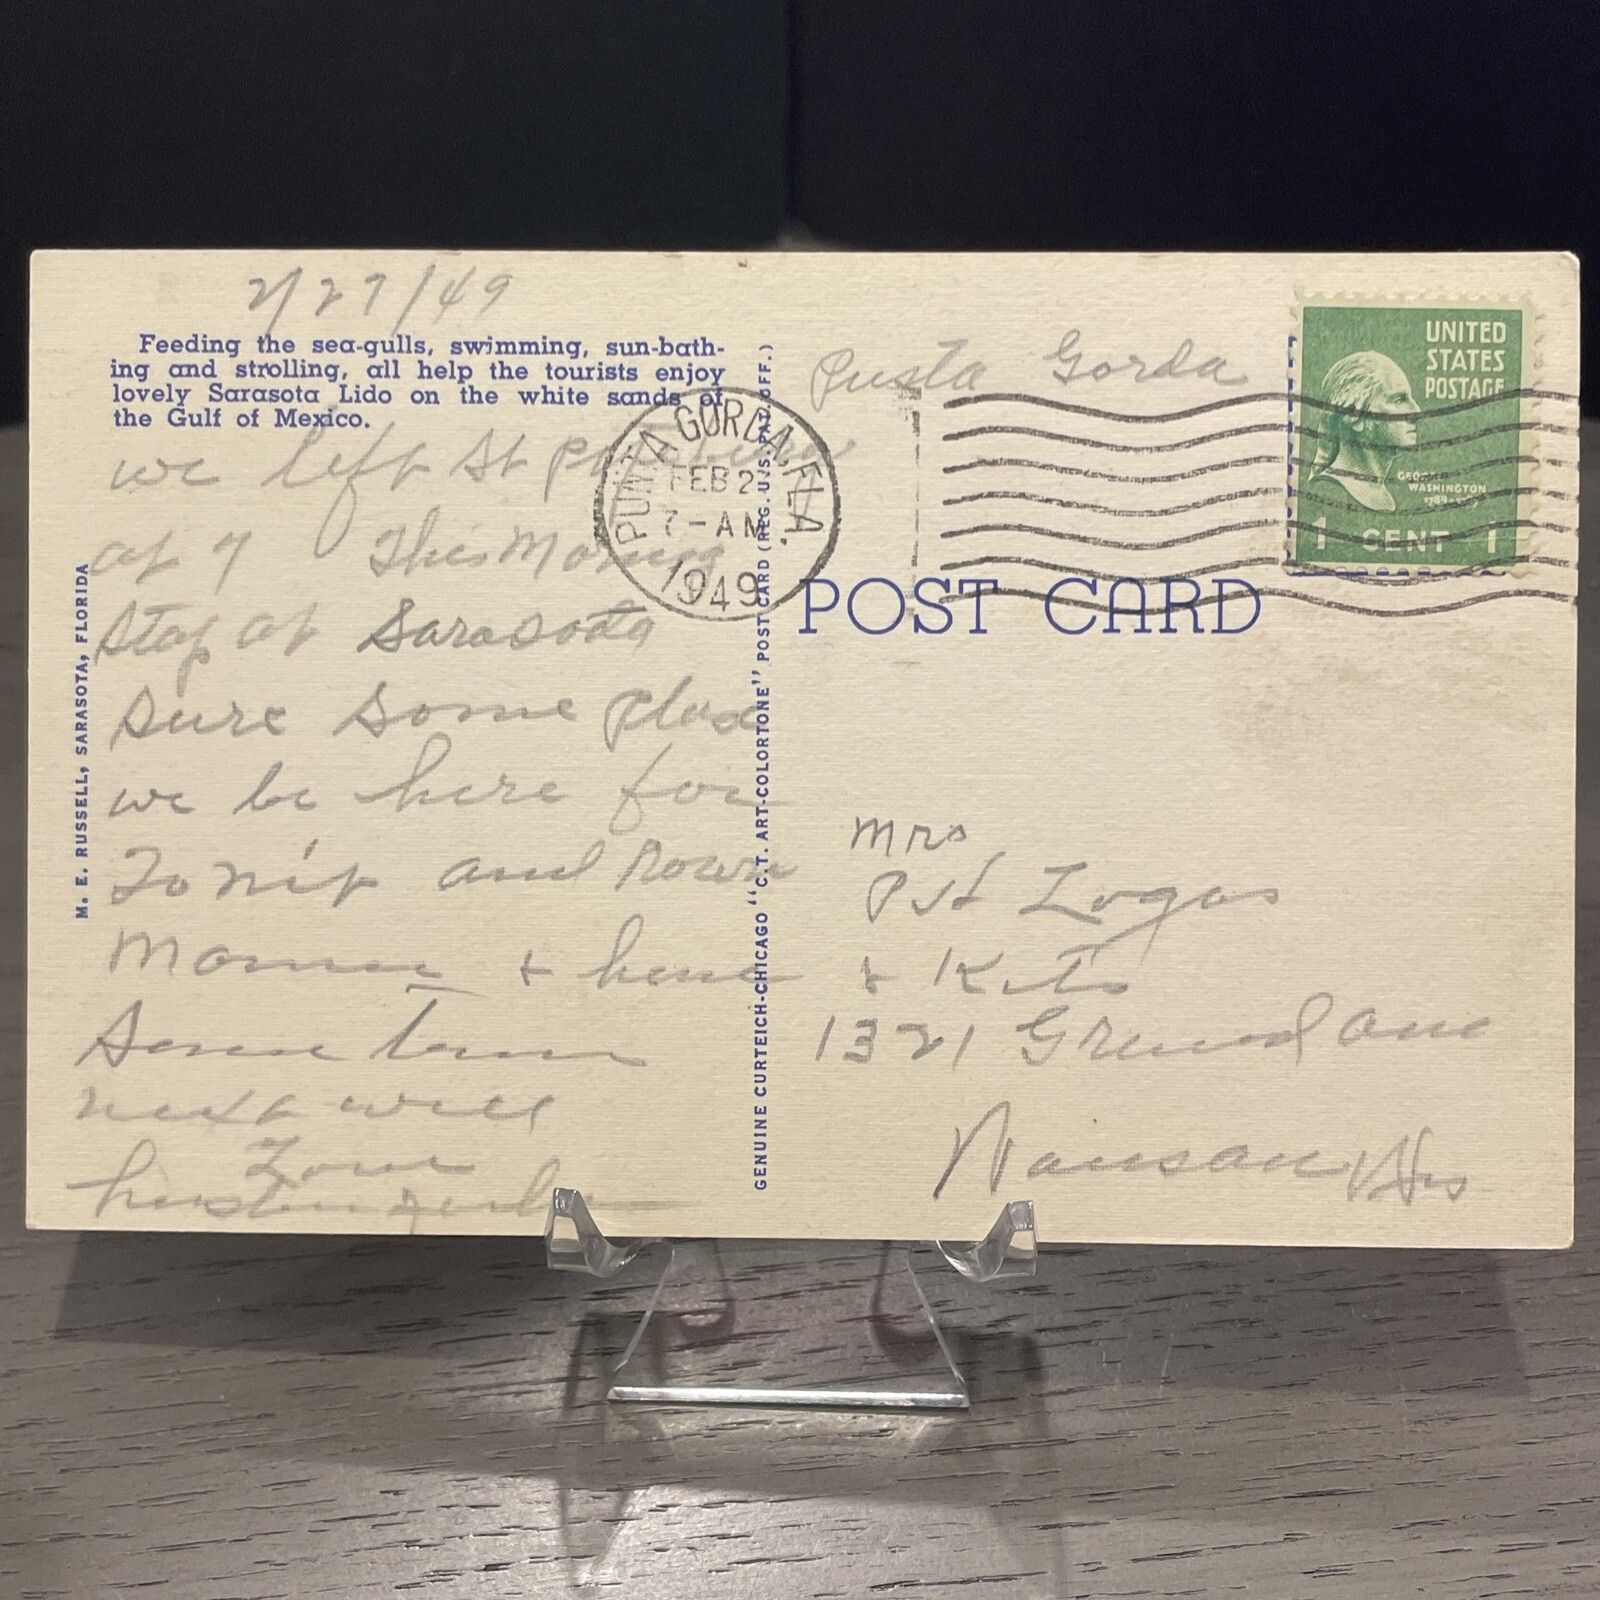 2/27/49
Feeding the sea-gulls, swimming, sun-bath-
ing and strolling, all help the tourists enjoy
lovely Sarasota Lido on the white sands of
the Gulf of Mexico.
we left St
at 7 This Morning
stop at Sarasota
sure some place
we be here for
To nit and Down
+
Some
next week
Love
M. E. RUSSELL, SARASOTA, FLORIDA
GENUINE CURTEICH-CHICAGO "C.T. ART-COLORTONE" POST CARD (REG. U.S. PAT. OFF.)
PUNTA GORDA, FLA.
FEB 2
7-AM
1949
Pusta Gorda
UNITED
STATES
POSTAGE
GEORGE
WASHINGTON
1 CENT 1
POST CARD
Mrs
Pat Logas
+ Kids
1321 Grand Ave
Wausau Wis